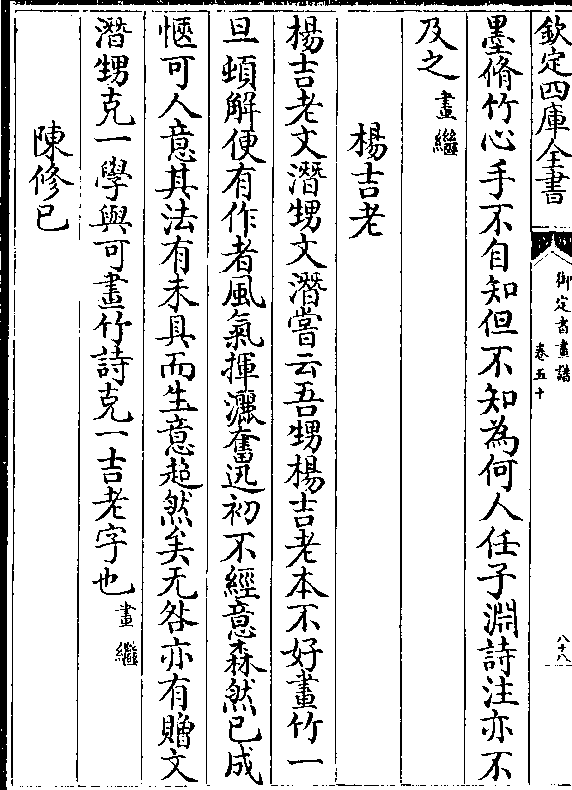 欽定四庫全書
御定書畫譜
卷五十
八十八
墨脩竹心手不自知但不知為何人任子淵詩注亦不
及之畫繼
楊吉老
楊吉老文潛甥文潛嘗云吾甥楊吉老本不好畫竹一
旦頓解便有作者風氣揮灑奮迅初不經意森然已成
愜可人意其法有未具而生意超然矣无咎亦有贈文
潛甥克一學與可畫竹詩克一吉老字也畫繼
陳修已